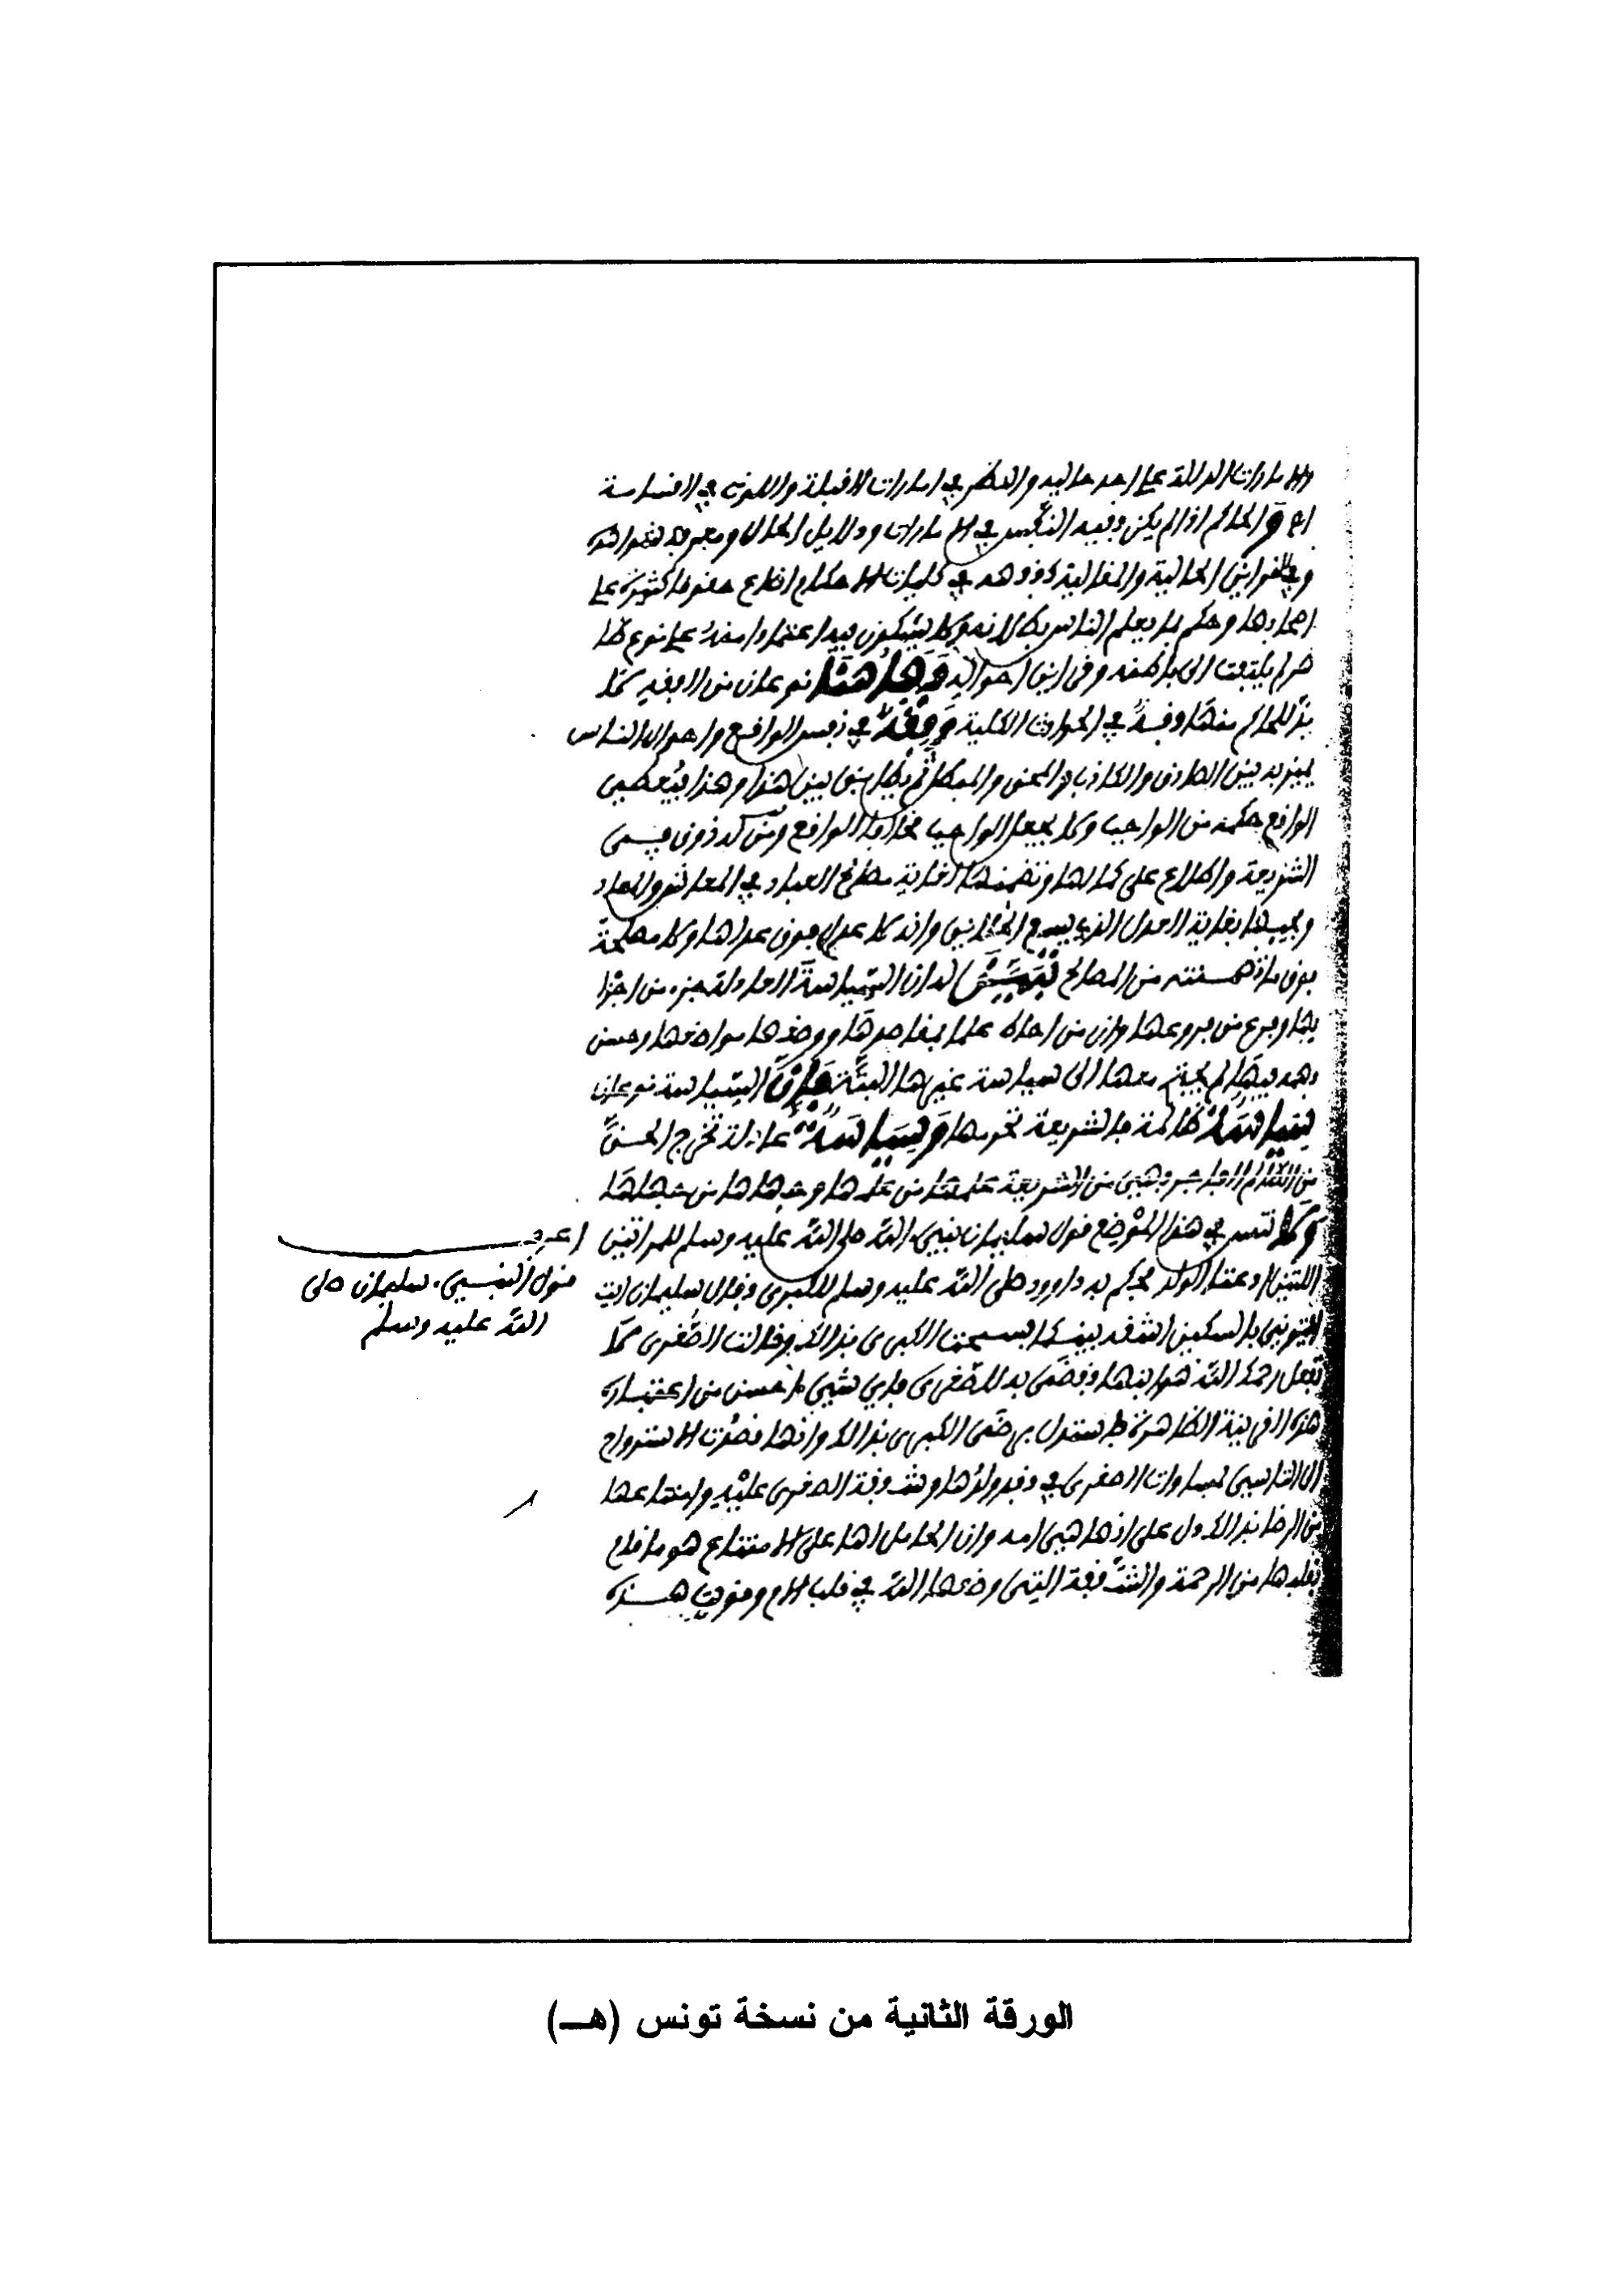 الامارات الدالة على احد حاليه والنظر في امارات القبلة واللوث في القسامة
والحاكم اذا لم يكن فقيه النفس في الامارات ودلايل الحال ومعرفة شواهده
وفي القراين الحالية والمقالية كفقهه في كليات الاحكام اضاع حقوقا كثيرة على
اصحابها وحكم بما يعلم الناس بطلانه ولا يشكون فيه اعتمادا منه على نوع ظا
هر لم يلتفت الى باطنه وقراين احواله وهاهنا نوعان من الفقه لا
بد للحاكم منهما وفقه في الحوادث الكلية وفقه في نفس الواقع واحوال الناس
يميز به بين الصادق والكاذب والمحق والمبطل ثم يطابق بين هذا وهذا فيعطي
الواقع حكمه من الواجب ولا يجعل الواجب مخالفا للواقع ومن له ذوق في
الشريعة واطلاع على كمالها وتضمنها لغاية مصالح العباد في المعاش والمعاد
ومجيبها بغاية العدل الذي يسع الخلايق وانه لا عدل فوق عدلها ولا مصلحة
فوق ما تضمنته من المصالح تبين له ان السياسة العادلة جزء من اجزا
يها وفرع من فروعها وان من احاط علما بمقاصدها ووضعها مواضعها وحسن
فهمه فيها لم يحتج معها الى سياسة غيرها البتة فان السياسة نوعان
سياسة ظالمة فالشريعة تحرمها وسياسة عادلة تخرج الحق
من الظالم الفاجر وهي من الشريعة علمها من علمها وجهلها من جهلها
ولا تنس في هذا الموضع قول سليمان نبي الله صلى الله عليه وسلم للمراتين
اللتين ادعتا الولد فحكم به داوود صلى الله عليه وسلم للكبرى فقال سليمان ايت
ايتوني بالسكين اشقه بينكما فسمحت الكبرى بذالك وقالت الصغرى لا
تفعل رحمك الله هو ابنها فقضى به للصغرى فاي شيي احسن من اعتبار
هذه القرينة الظاهرة فاستدل برضى الكبرى بذالك وانها قصدت الاسترواح
الى التاسي بمساوات الصغرى في فقد ولدها وشفقة الصغرى عليه وامتناعها
من الرضا بذالك دل على انها هي امه وان الحامل لها على الامتناع هو ما قام
بقلبها من الرحمة والشفقة التي وضعها الله في قلب الام وقويت هذه
اعرف
قول النبيي سليمان صلى
الله عليه وسلم
الورقة الثانية من نسخة تونس (هـ)